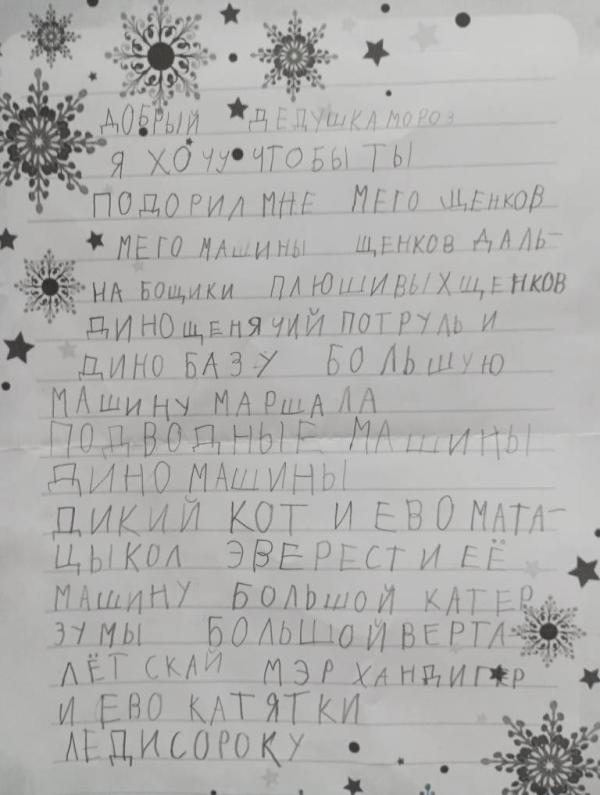 ДОБРЫЙ ДЕДУШКА МОРОЗ
Я ХОЧУ ЧТОБЫ ТЫ
ПОДОРИЛ МНЕ МЕГО ЩЕНКОВ
МЕГО МАШИНЫ ЩЕНКОВ ДАЛЬ-
НА БОЩИКИ ПЛЮШИВЫХ ЩЕНКОВ
ДИНО ЩЕНЯЧИЙ ПОТРУЛЬ И
ДИНО БАЗУ БОЛЬШУЮ
МАШИНУ МАРШАЛА
ПОДВОДНЫЕ МАШИНЫ
ДИНО МАШИНЫ
ДИКИЙ КОТ И ЕВО МАТА-
ЦЫКОЛ ЭВЕРЕСТ И ЕЁ
МАШИНУ БОЛЬШОЙ КАТЕР
ЗУМЫ БОЛЬШОЙ ВЕРТА-
ЛЁТ СКАЙ МЭР ХАНДИГЕР
И ЕВО КАТЯТКИ
ЛЕДИ СОРОКУ